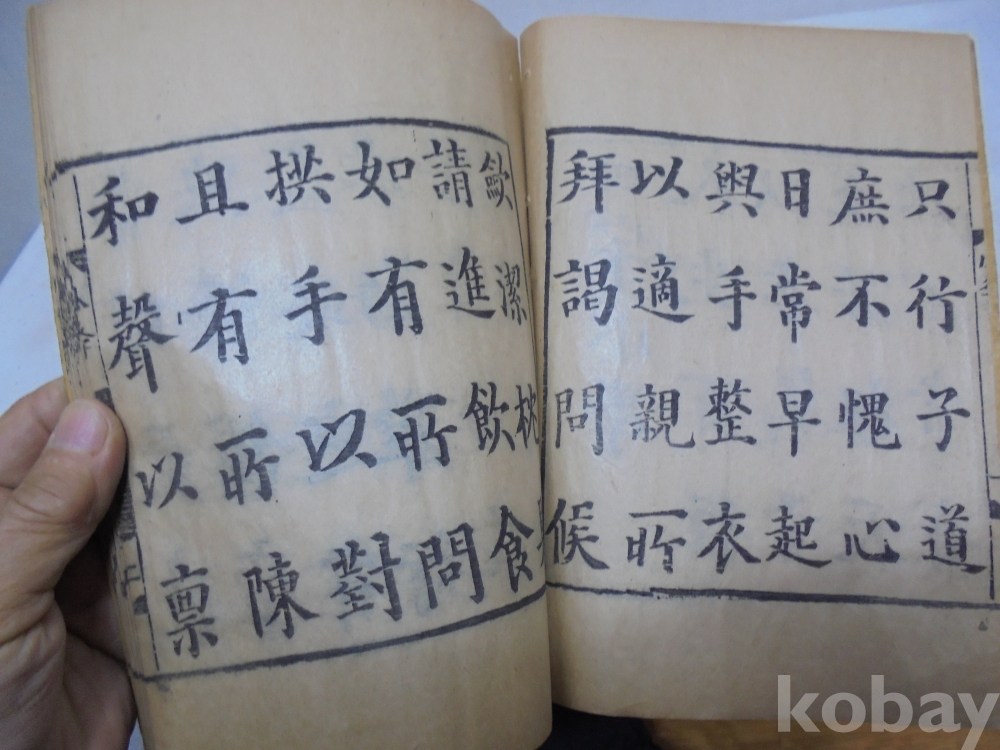 只行子道
庶不愧心
日常早起
與手整衣
以適親所
拜謁問候
歛潔枕
請進飮食
如有所問
拱手以對
且有所陳
和聲以禀
kobay